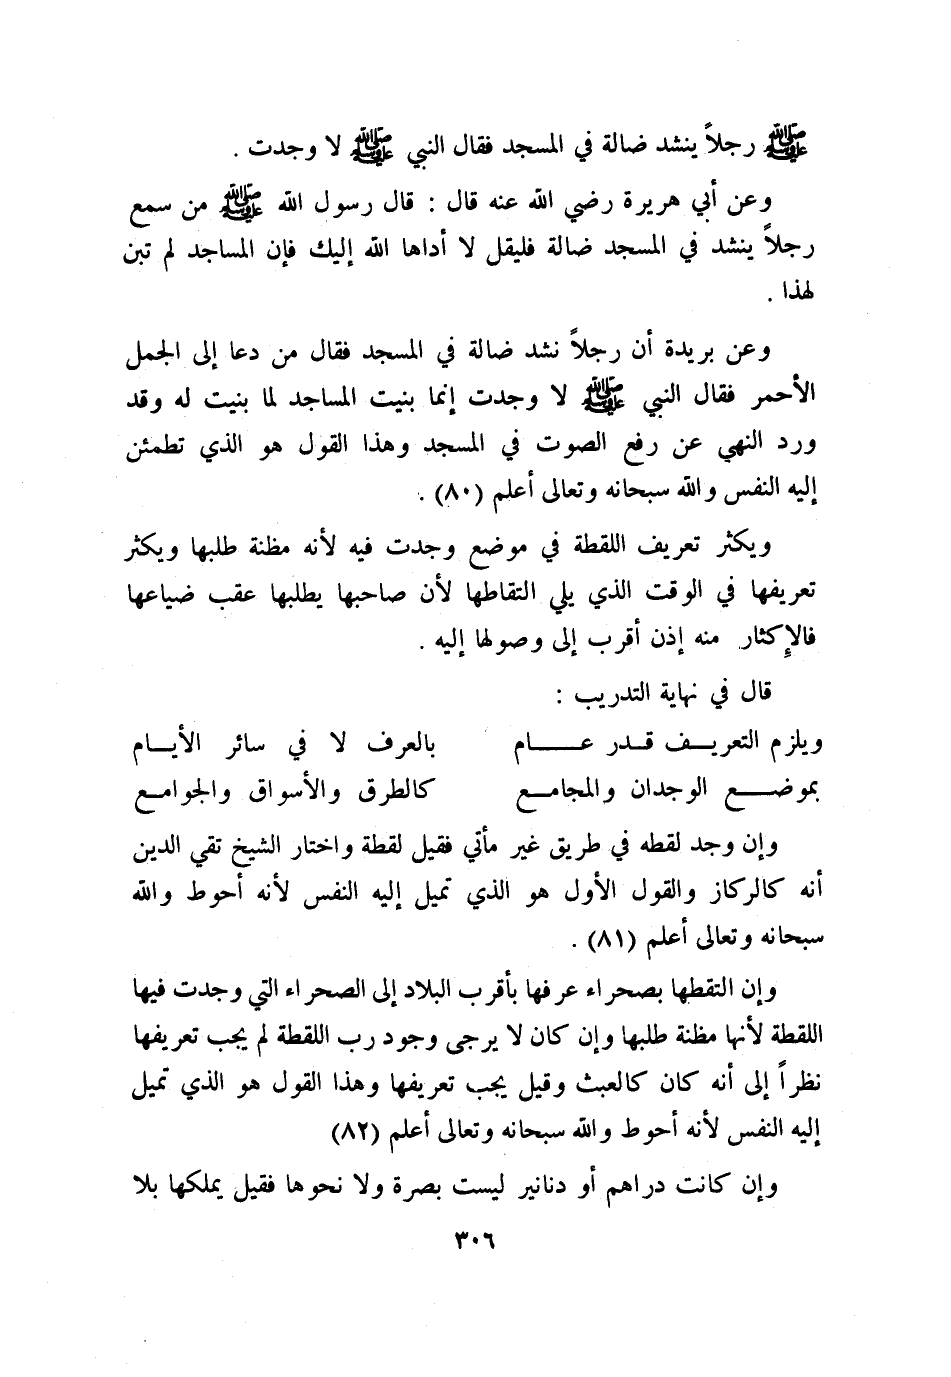 ﷺ رجلاً ينشد ضالة في المسجد فقال النبي ﷺ لا وجدت .
وعن أبي هريرة رضي الله عنه قال : قال رسول الله ﷺ من سمع
رجلاً ينشد في المسجد ضالة فليقل لا أداها الله إليك فإن المساجد لم تبن
لهذا .
وعن بريدة أن رجلاً نشد ضالة في المسجد فقال من دعا إلى الجمل
الأحمر فقال النبي ﷺ لا وجدت إنما بنيت المساجد لما بنيت له وقد
ورد النهي عن رفع الصوت في المسجد وهذا القول هو الذي تطمئن
إليه النفس والله سبحانه وتعالى أعلم (٨٠) .
ويكثر تعريف اللقطة في موضع وجدت فيه لأنه مظنة طلبها ويكثر
تعريفها في الوقت الذي يلي التقاطها لأن صاحبها يطلبها عقب ضياعها
فالإكثار منه إذن أقرب إلى وصولها إليه .
قال في نهاية التدريب :
ويلزم التعريـف قـدر عـــام بالعرف لا في سائر الأيـام
بموضـــع الوجدان والمجامـع كالطرق والأسواق والجوامـع
وإن وجد لقطه في طريق غير مأتي فقيل لقطة واختار الشيخ تقي الدين
أنه كالركاز والقول الأول هو الذي تميل إليه النفس لأنه أحوط والله
سبحانه وتعالى أعلم (٨١) .
وإن التقطها بصحراء عرفها بأقرب البلاد إلى الصحراء التي وجدت فيها
اللقطة لأنها مظنة طلبها وإن كان لا يرجى وجود رب اللقطة لم يجب تعريفها
نظراً إلى أنه كان كالعبث وقيل يجب تعريفها وهذا القول هو الذي تميل
إليه النفس لأنه أحوط والله سبحانه وتعالى أعلم (٨٢)
وإن كانت دراهم أو دنانير ليست بصرة ولا نحوها فقيل يملكها بلا
٣٠٦